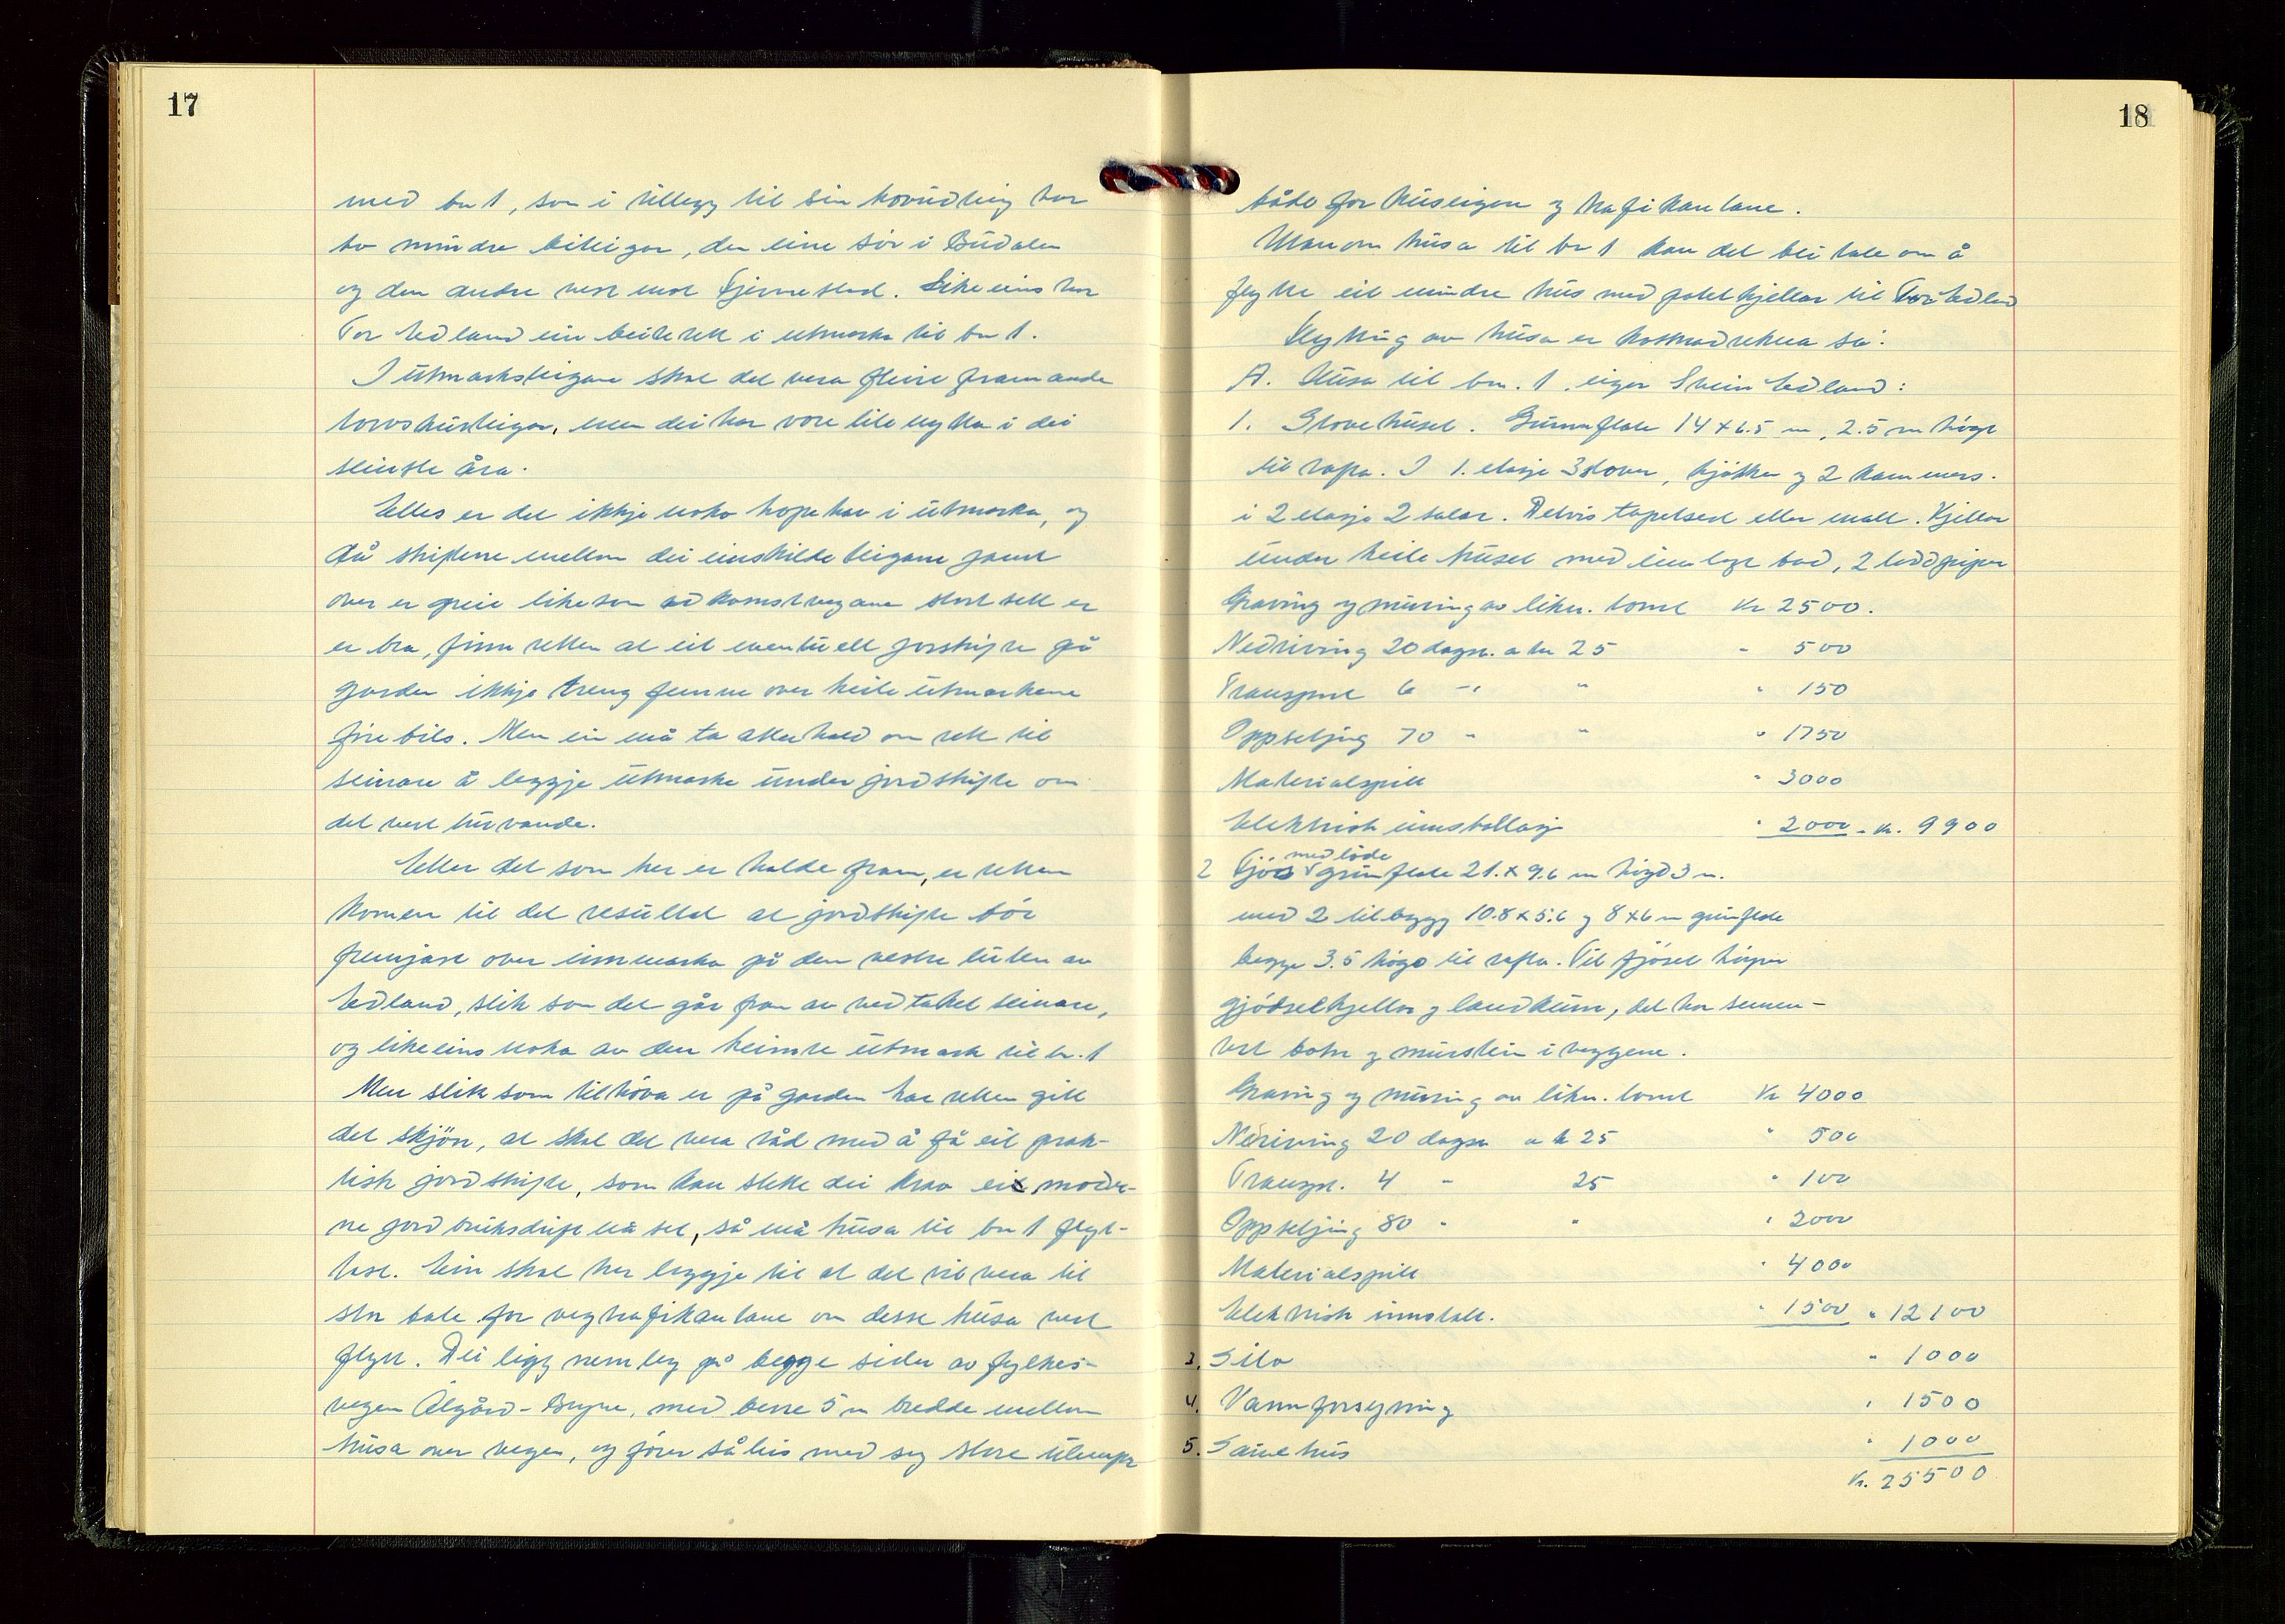 17
med bn 1, som i tillegg til sin hovudteig har
to mindre beiteigar, den eine sör i Budalen
og den andre vest mot Fjermestad. Likeeins har
Tor Edland ein beiterett i utmarka til bn 1.
I utmarksteigane skal det vera fleire framande
torvskurteigar, men dei har vore lite nytta i dei
seinste åra.
Elles er det ikkje noko hopehav i utmarka, og
då skiftene mellom dei einskilde teigane jamt
over er greie likeson adkomstvegane stort sett er
er bra, finn retten at eit eventuell jorskifte på
garden ikkje treng femne over heile utmarkane
fire bils. Men ein må ta atterhald om rett til
seinare å leggje utmarka under jordskifte om
det vert turvande.
Etter det som her er halde fram, er retten
komen til det resultat at jordskifte bör
fremjast over innmarka på den vestre luten av
Edland, slik som det går fram av vedtaket seinare,
og likeeins noko av den heimste utmark til br. 1
Men slik som tilhöva er på garden har retten gitt
det skjön, at skal det vera råd med å få eit prak-
tisk jordskifte, som kan stette dei krav eit moder-
ne jordbruksdrift nå set, så må husa til bn 1 flyt-
tast. Ein skal her leggje til at det vil vera til
stor bate for vegtrafikantane om desse husa vert
flytt. Dei ligg nemleg på begge sider av fylkes-
vegen Ålgård - Bryne, med berre 5 m bredde mellom
husa over vegen, og förer således med seg store ulemper
18
både for huseigar og trafikantane.
Utanom husa til br 1 kan det bli tale om å
flytte eit mindre hus med potetkjellar til Tor Edland
Flytting av husa er kostnadrekna så:
A. Husa til bn. 1. eigar Svein Edland:
1. Stovehuset. Grunnflate 14 x 6.5 m, 2.5 m högt
til rafta. I 1. etasje 3 stover, kjökken og 2 kammers.
i 2 etasje 2 salar. Delvis tapetsert eller malt. Kjellar
under heile huset med innlagt bad, 2 teddpiper
Graving og muring av likn. tomt Kr 2500.
Nedriving 20 dagsv. a kr 25 - 500
Transport 6 -" " " 150
Oppsetjing 70 " " " 1750
Materialspill " 3000
Elektrisk innstallasj " 2000 - kr. 9900
2 Fjös med löde grunflate 21. x 9.6 m högd 3 m.
med 2 tilbygg 10.8 x 5.6 og 8 x 6 m grunflate
begge 3.5 höge til rafta. Til fjöset höyrer
gjödselkjellar og landkum, det har semen-
tert botn og murstein i veggene.
Graving og muring av likn. tomt Kr 4000
Neriving 20 dagsv a k 25 " 500
Transpt. 4 " 25 " 100
Oppsetjing 80 " " " 2000
Materialspill " 4000
Elektrisk innstall. " 1500 " 12100
3. Silo " 1000
4. Vannforsyning " 1500
5. Sauehus " 1000
Kr. 25500